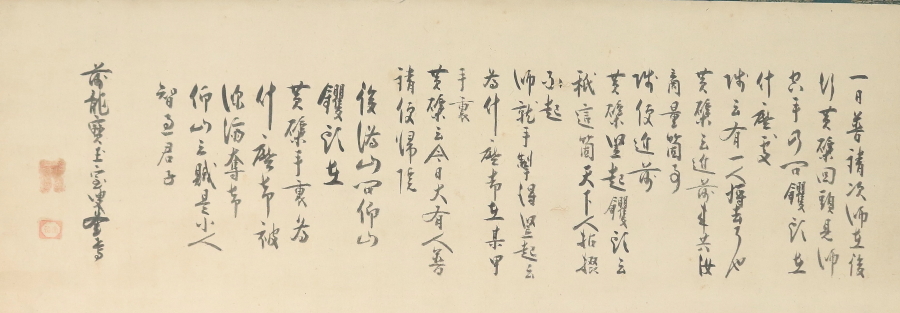 一日普請次師在後
行黃檗回頭見師
空手乃問钁頭在
什麼處
師云有一人將去了也
黃檗云近前來共汝
商量箇事
師便近前
黃檗竪起钁頭云
秖這箇天下人拈掇
不起
師就手掣得竪起云
為什麼却在某甲
手裏
黃檗云今日大有人普
請便歸院
後溈山問仰山
钁頭在
黃檗手裏為
什麼却被
臨濟奪却
仰山云賊是小人
智過君子
前龍寶